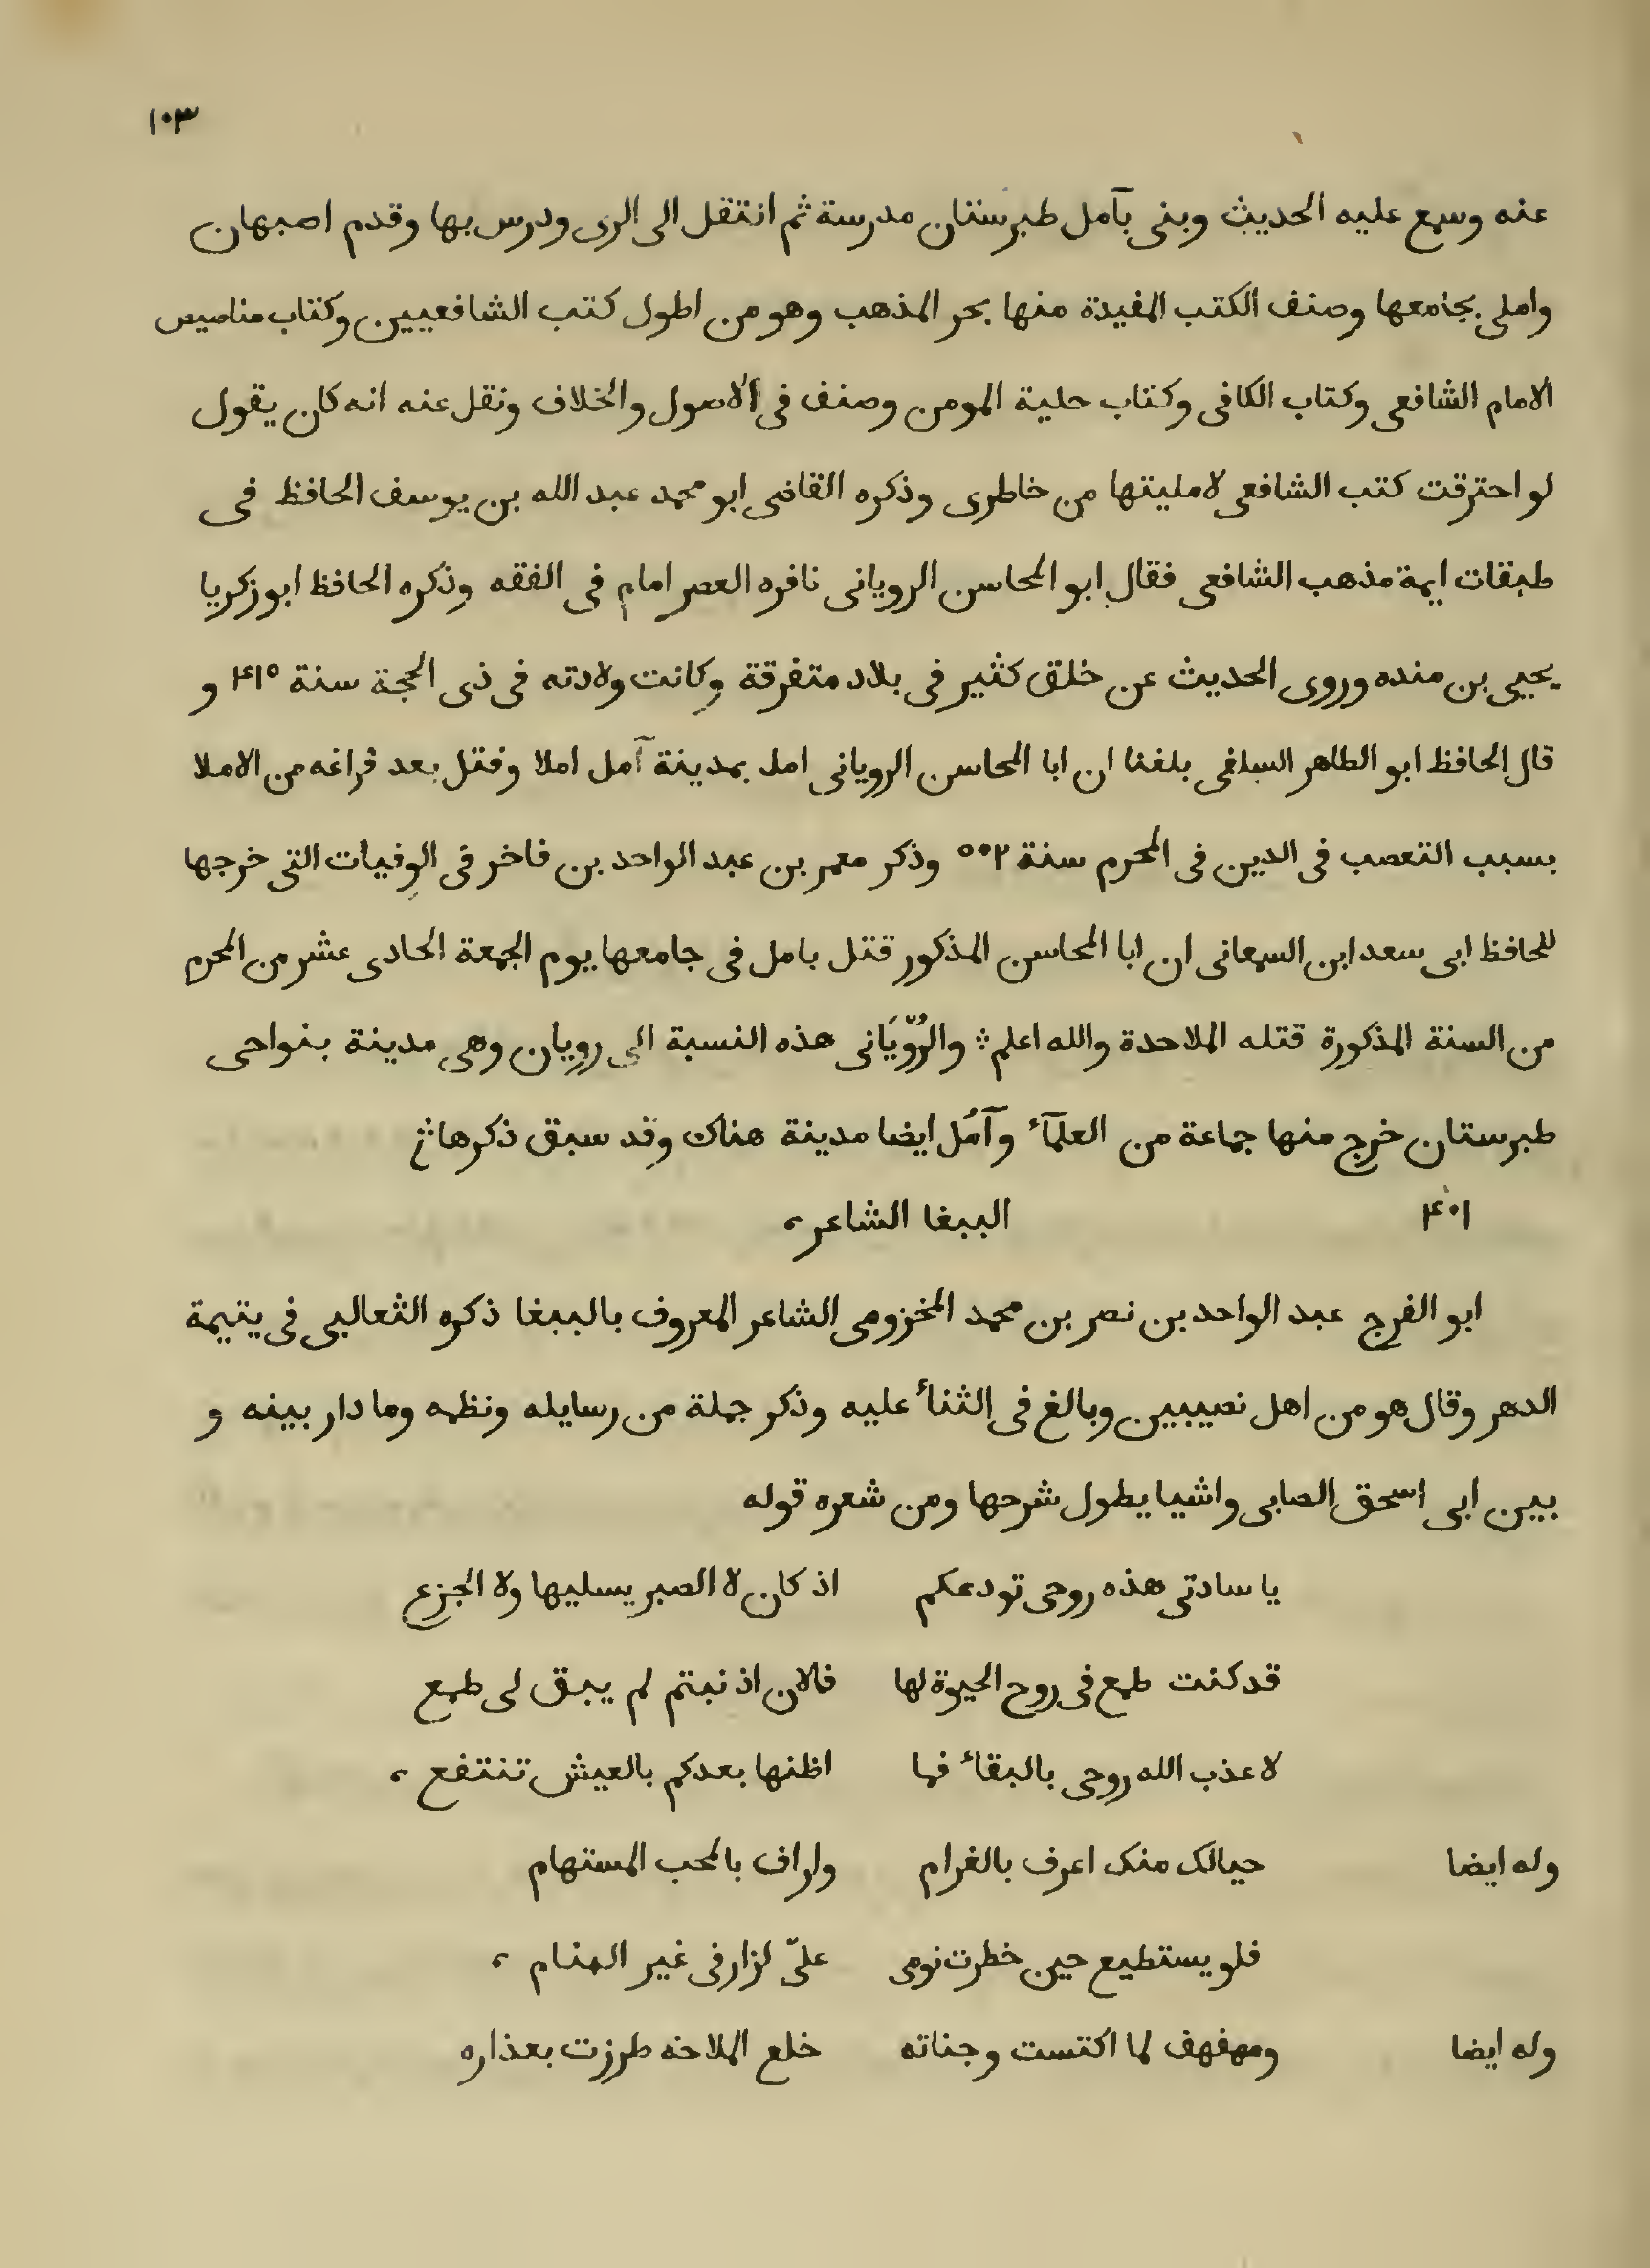 ١٠٣
عنه وسمع عليه الحديث وبنى بآمل طبرستان مدرسة ثم انتقل الى الرى ودرس بها وقدم اصبهان
واملى بجامعها وصنف الكتب المفيدة منها بحر المذهب وهو من اطول كتب الشافعيين وكتاب مناصيص
الامام الشافعى وكتاب الكافى وكتاب حلية المومن وصنف فى الاصول والخلاف ونقل عنه انه كان يقول
لو احترقت كتب الشافعى لامليتها من خاطرى وذكره القاضى ابو محمد عبد الله بن يوسف الحافظ فى
طبقات ايمة مذهب الشافعى فقال ابو المحاسن الرويانى نافره العصر امام فى الفقه وذكره الحافظ ابو زكريا
يحيى بن منده وروى الحديث عن خلق كثير فى بلاد متفرقة وكانت ولادته فى ذى الحجة سنة ٤١٥ و
قال الحافظ ابو الطاهر السلفى بلغنا ان ابا المحاسن الرويانى امل بمدينة آمل املا وقتل بعد فراغه من الاملا
بسبب التعصب فى الدين فى المحرم سنة ٥٠٢ وذكر معمر بن عبد الواحد بن فاخر فى الوفيات التى خرجها
للحافظ ابى سعد ابن السمعانى ان ابا المحاسن المذكور قتل بامل فى جامعها يوم الجمعة الحادى عشر من المحرم
من السنة المذكورة قتله الملاحدة والله اعلم ؞ والرُّويَانى هذه النسبة الى رويان وهى مدينة بنواحى
طبرستان خرج منها جماعة من العلمآء وآمُل ايضا مدينة هناك وقد سبق ذكرها ؞
٤٠١ الببغا الشاعر ،
ابو الفرج عبد الواحد بن نصر بن محمد المخزومى الشاعر المعروف بالببغا ذكره الثعالبى فى يتيمة
الدهر وقال هو من اهل نصيبين وبالغ فى الثناء عليه وذكر جملة من رسايله ونظمه وما دار بينه و
بين ابى اسحق الصابى واشيا يطول شرحها ومن شعره قوله
يا سادتى هذه روحى تودعكم اذ كان لا الصبر يسليها ولا الجزع
قد كنت طمع فى روح الحيوة لها فالان اذ نبتم لم يبق لى طمع
لا عذب الله روحى بالبقاء فما اظنها بعدكم بالعيش تنتفع ،
وله ايضا حيالك منك اعرف بالغرام واراف بالمحب المستهام
فلو يستطيع حين خطرت نومى علىّ لزار فى غير المنام ،
وله ايضا ومهفهف لما اكتست وجناته خلع الملاحة طرزت بعذاره